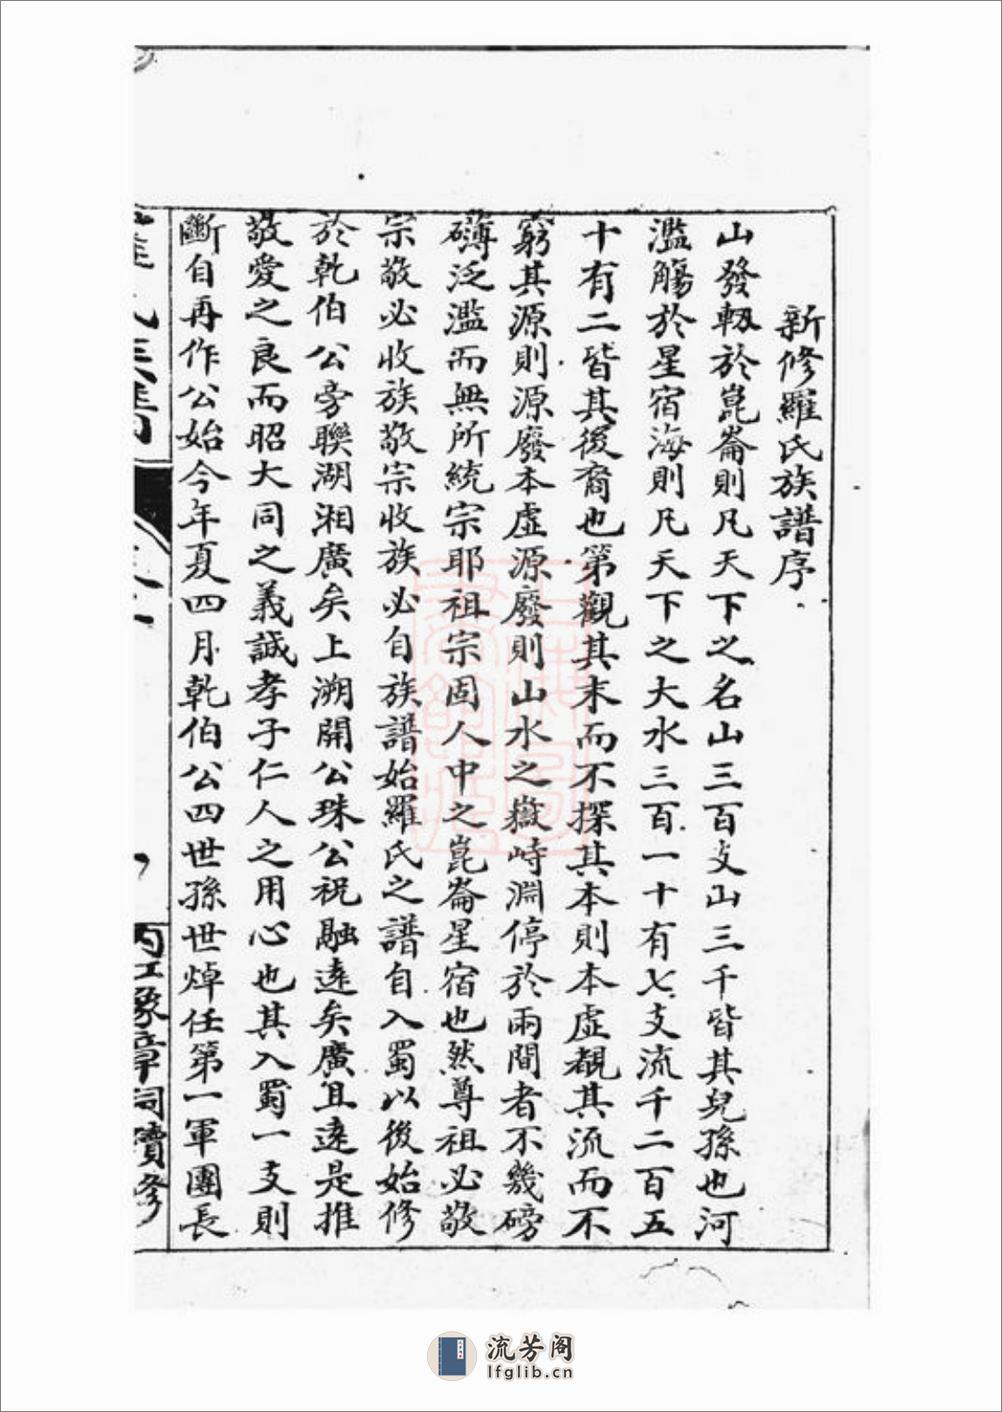 新修羅氏族譜序
山發軔於崑崙則凡天下之名山三百支山三千皆其兒孫也河
濫觴於星宿海則凡天下之大水三百一十有七支流千二百五
十有二皆其後裔也第觀其末而不探其本則本虛觀其流而不
窮其源則源廢本虛源廢則山水之嶽峙淵停於兩間者不幾磅
礡泛濫而無所統宗耶祖宗固人中之崑崙星宿也然尊祖必敬
宗敬必收族敬宗收族必自族譜始羅氏之譜自入蜀以後始修
於乾伯公旁聯湖湘廣矣上溯開公珠公祝融遠矣廣且遠是推
敬愛之良而昭大同之義誠孝子仁人之用心也其入蜀一支則
斷自再作公始今年夏四月乾伯公四世孫世焯任第一軍團長
豫章祠續修
流芳阁
lfglib.cn